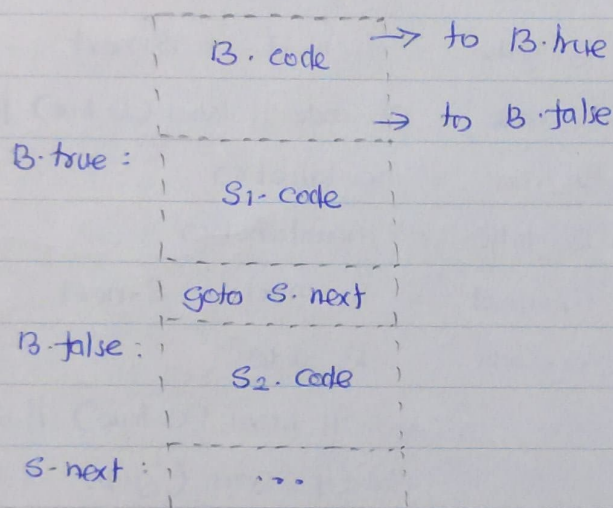 B. code → to B.true
→ to B.false
B.true :
S1. code
goto S.next
B.false :
S2. code
S.next : ...